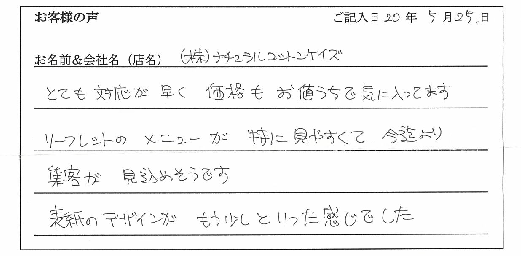 お客様の声 ご記入日 20年 5月 25日
お名前&会社名(店名) (株)ナチュラルコットンケイズ
とても 対応が 早く 価格も お値うちで気に入ってます
リーフレットの メニューが 特に見やすくて 今迄より
集客が 見込めそうです
表紙のデザインが もう少しといった感じでした